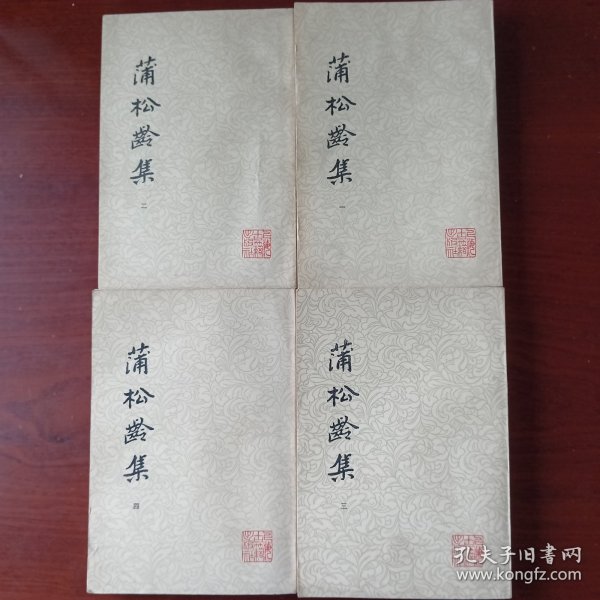 蒲松齡集
二
蒲松齡集
一
蒲松齡集
四
蒲松齡集
三
孔夫子旧书网
www.kongfz.com